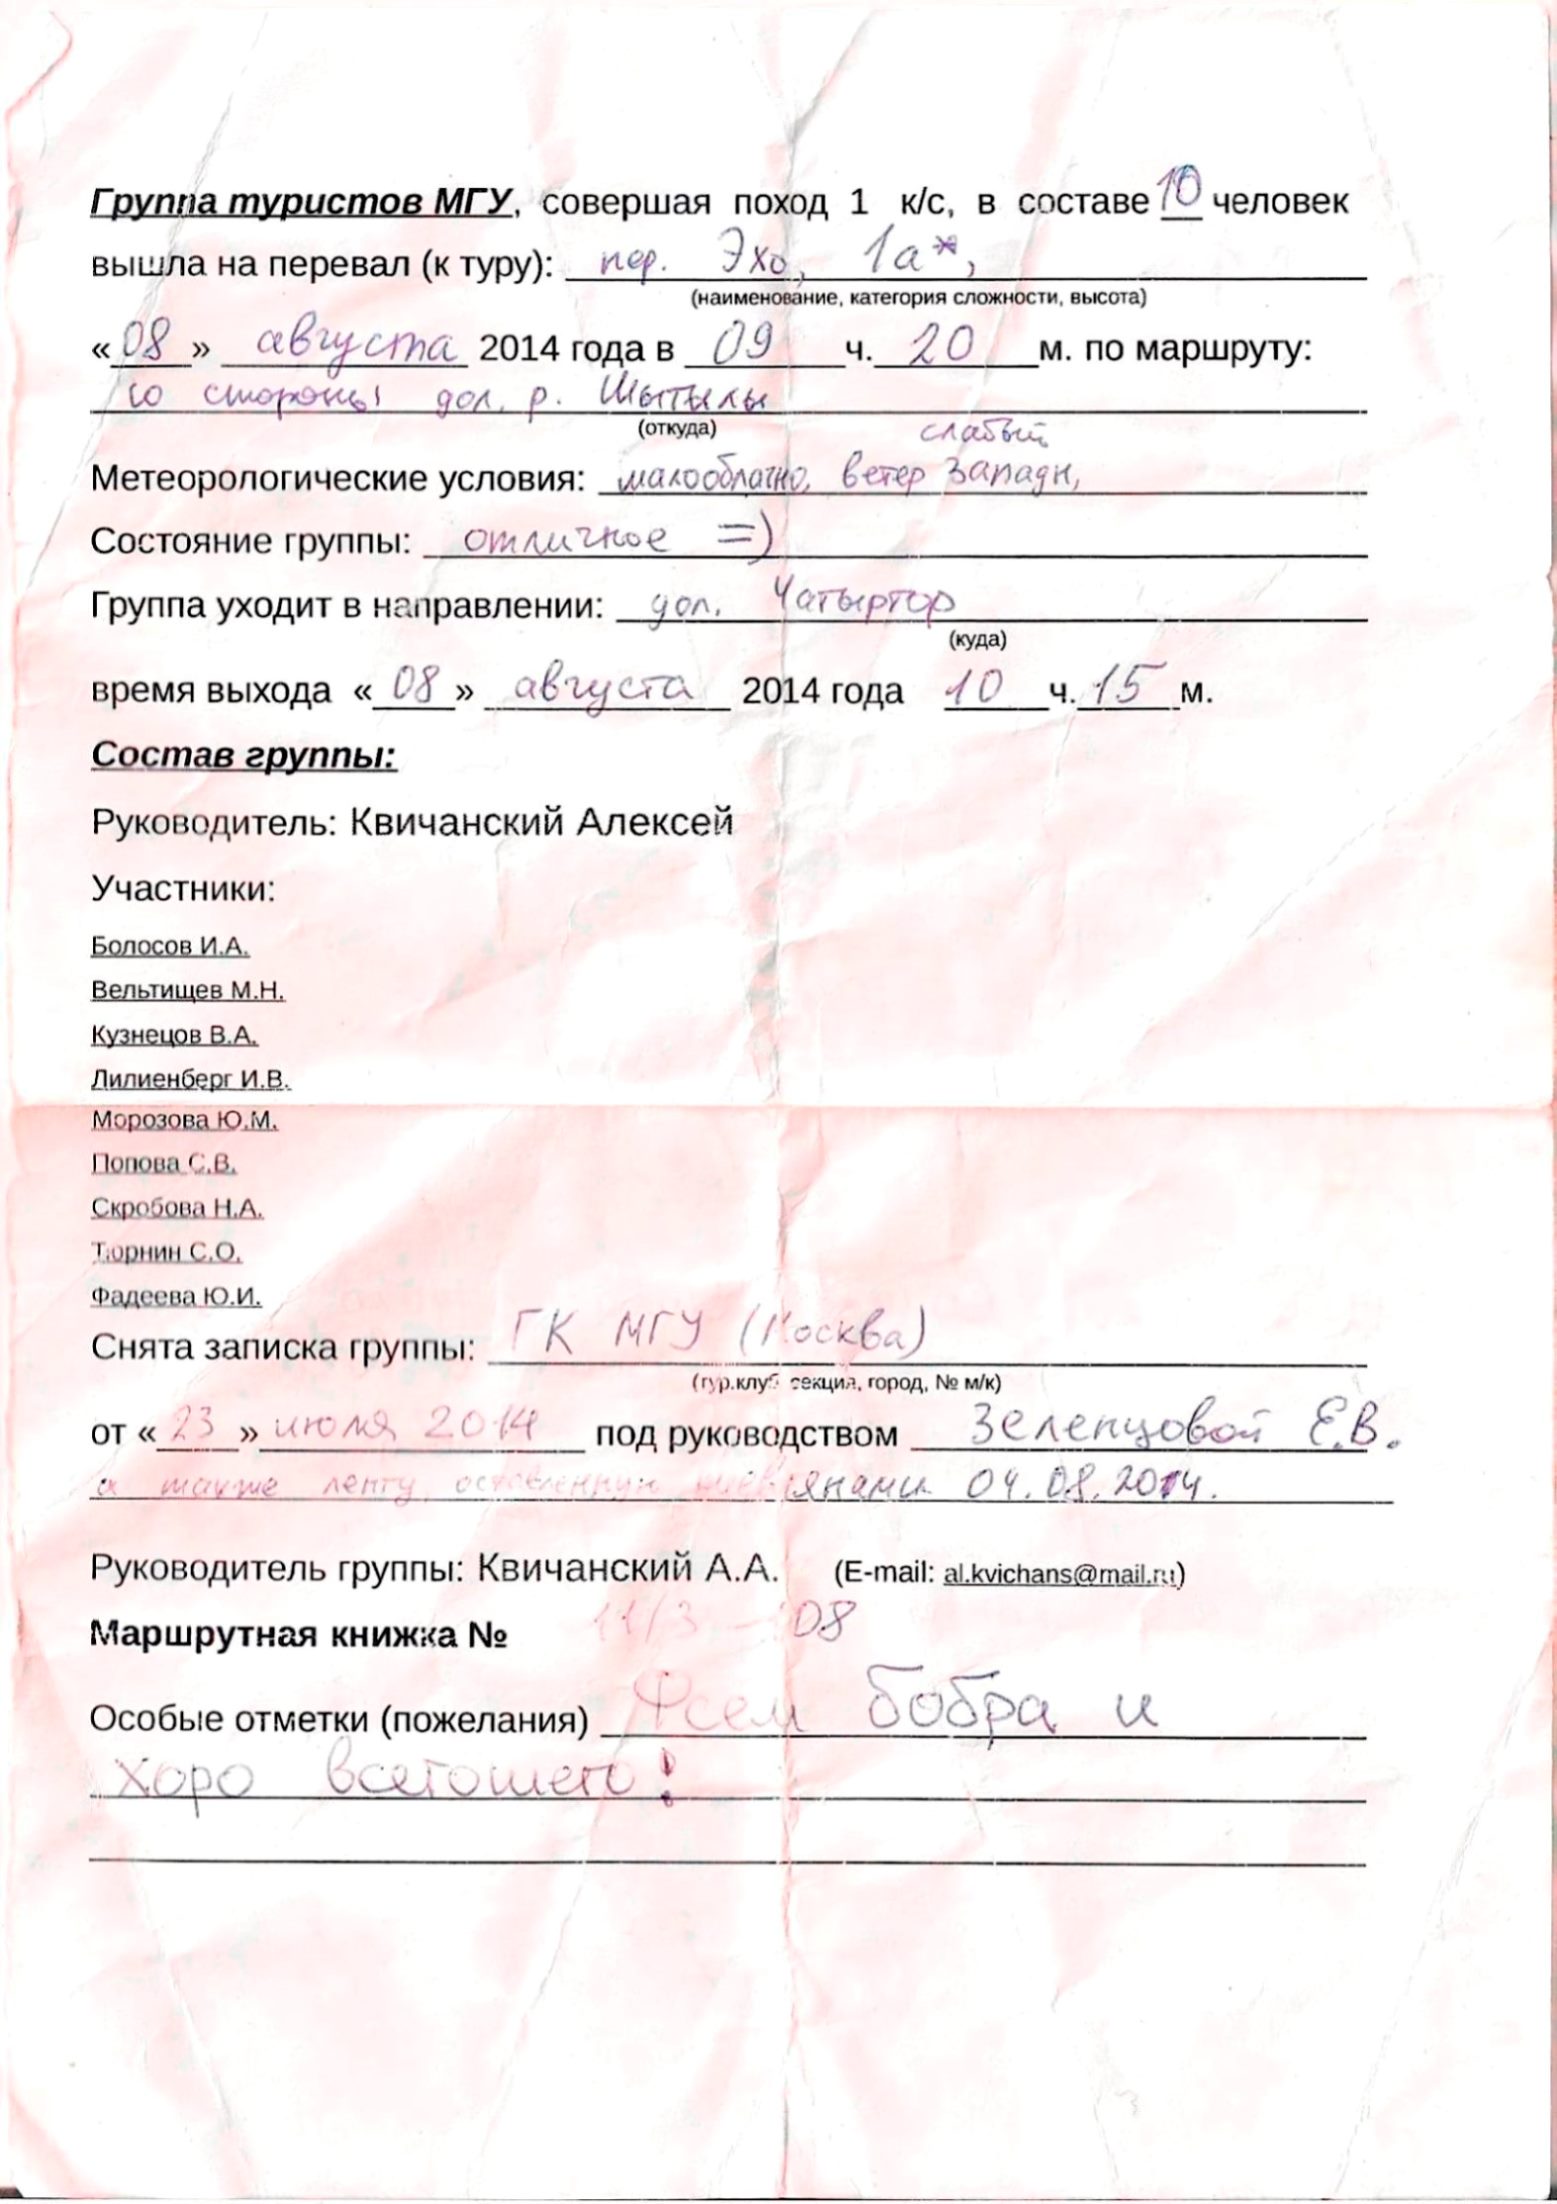 Группа туристов МГУ, совершая поход 1 к/с, в составе 10 человек
вышла на перевал (к туру): пер. Эхо, 1а*,
(наименование, категория сложности, высота)
«08» августа 2014 года в 09 ч. 20 м. по маршруту:
со стороны дол. р. Шытылы
(откуда)
слабый
Метеорологические условия: малооблачно, ветер западн,
Состояние группы: отличное =)
Группа уходит в направлении: дол. Чатыртор
(куда)
время выхода «08» августа 2014 года 10 ч. 15 м.
Состав группы:
Руководитель: Квичанский Алексей
Участники:
Болосов И.А.
Вельтищев М.Н.
Кузнецов В.А.
Лилиенберг И.В.
Морозова Ю.М.
Попова С.В.
Скробова Н.А.
Тюрнин С.О.
Фадеева Ю.И.
Снята записка группы: ГК МГУ (Москва)
(тур.клуб секция, город, № м/к)
от «23» июля 2014 под руководством Зеленцовой Е.В.
а также ленту, оставленную киевлянами 04.08.2014.
Руководитель группы: Квичанский А.А. (E-mail: al.kvichans@mail.ru)
Маршрутная книжка № 11/3 – 108
Особые отметки (пожелания) Фсем бобра и
хоро всегошего!